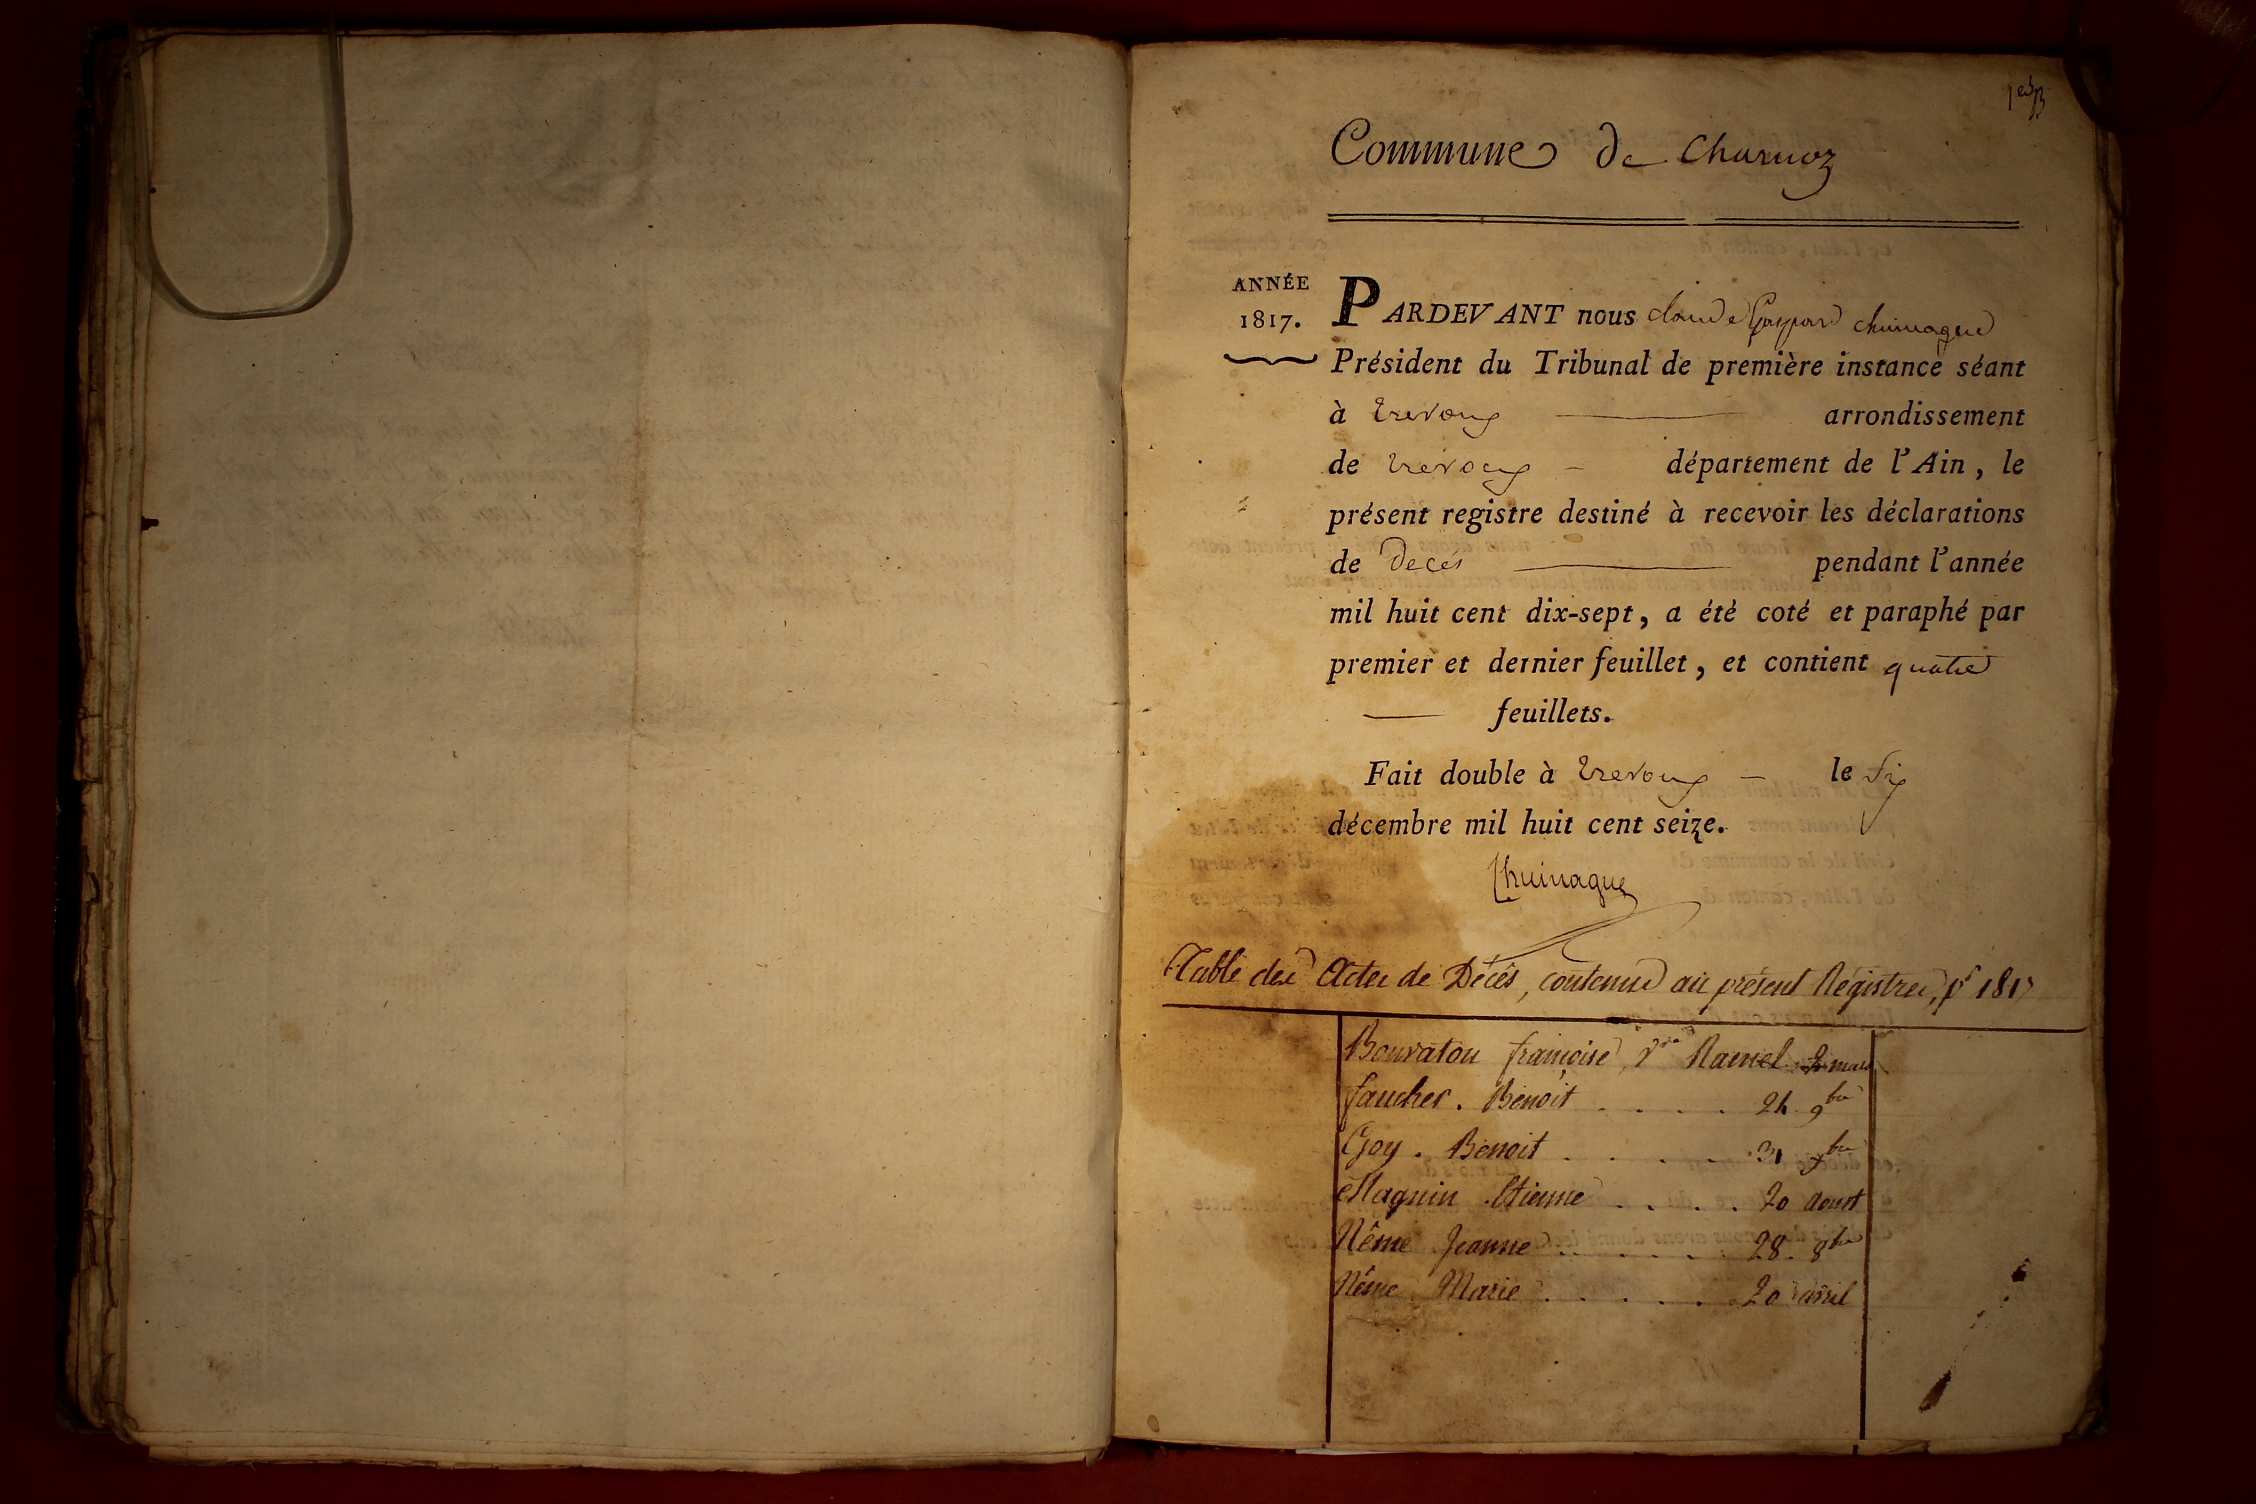 Commune de Charnoz
ANNÉE
1817.
PARDEVANT nous Claude Gaspar
Président du Tribunal de première instance séant
à trevoux arrondissement
de trevoux département de l'Ain, le
présent registre destiné à recevoir les déclarations
de Decés pendant l'année
mil huit cent dix-sept, a été coté et paraphé par
premier et dernier feuillet, et contient quatre
feuillets.
Fait double à trevoux le six
décembre mil huit cent seize.
Table des Actes de Décès, contenus au présent Régistre, pr 1817
Bouvaton françoise, Vve Ramel mars
faucher. Benoit . . . . 24. 9bre
Goy. Benoit . . . . . 31
Magnin Etienne . . . . 20 Aoust
Nême Jeanne . . . . . 28. 8bre
Nême Marie . . . . . 20 avril